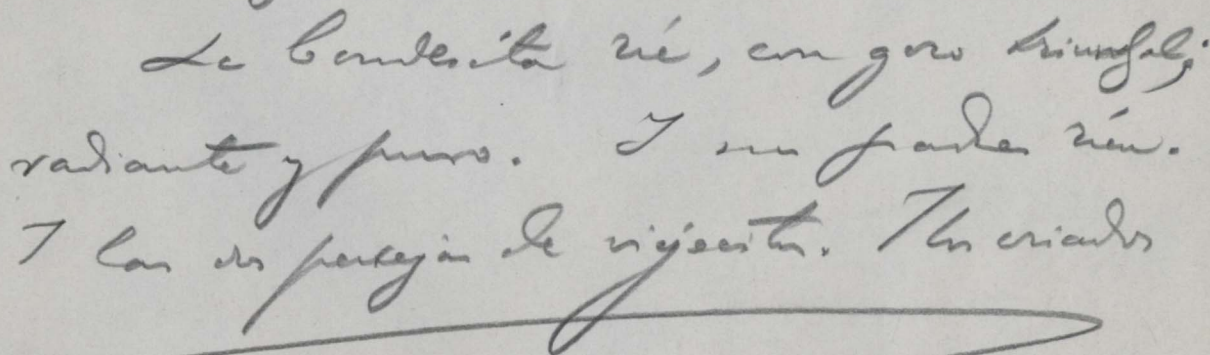 La Condesita rié, con gozo triunfal;
radiante y puro. Y sus padres rién.
Y las dos parejas de viejecitos. Y los criados